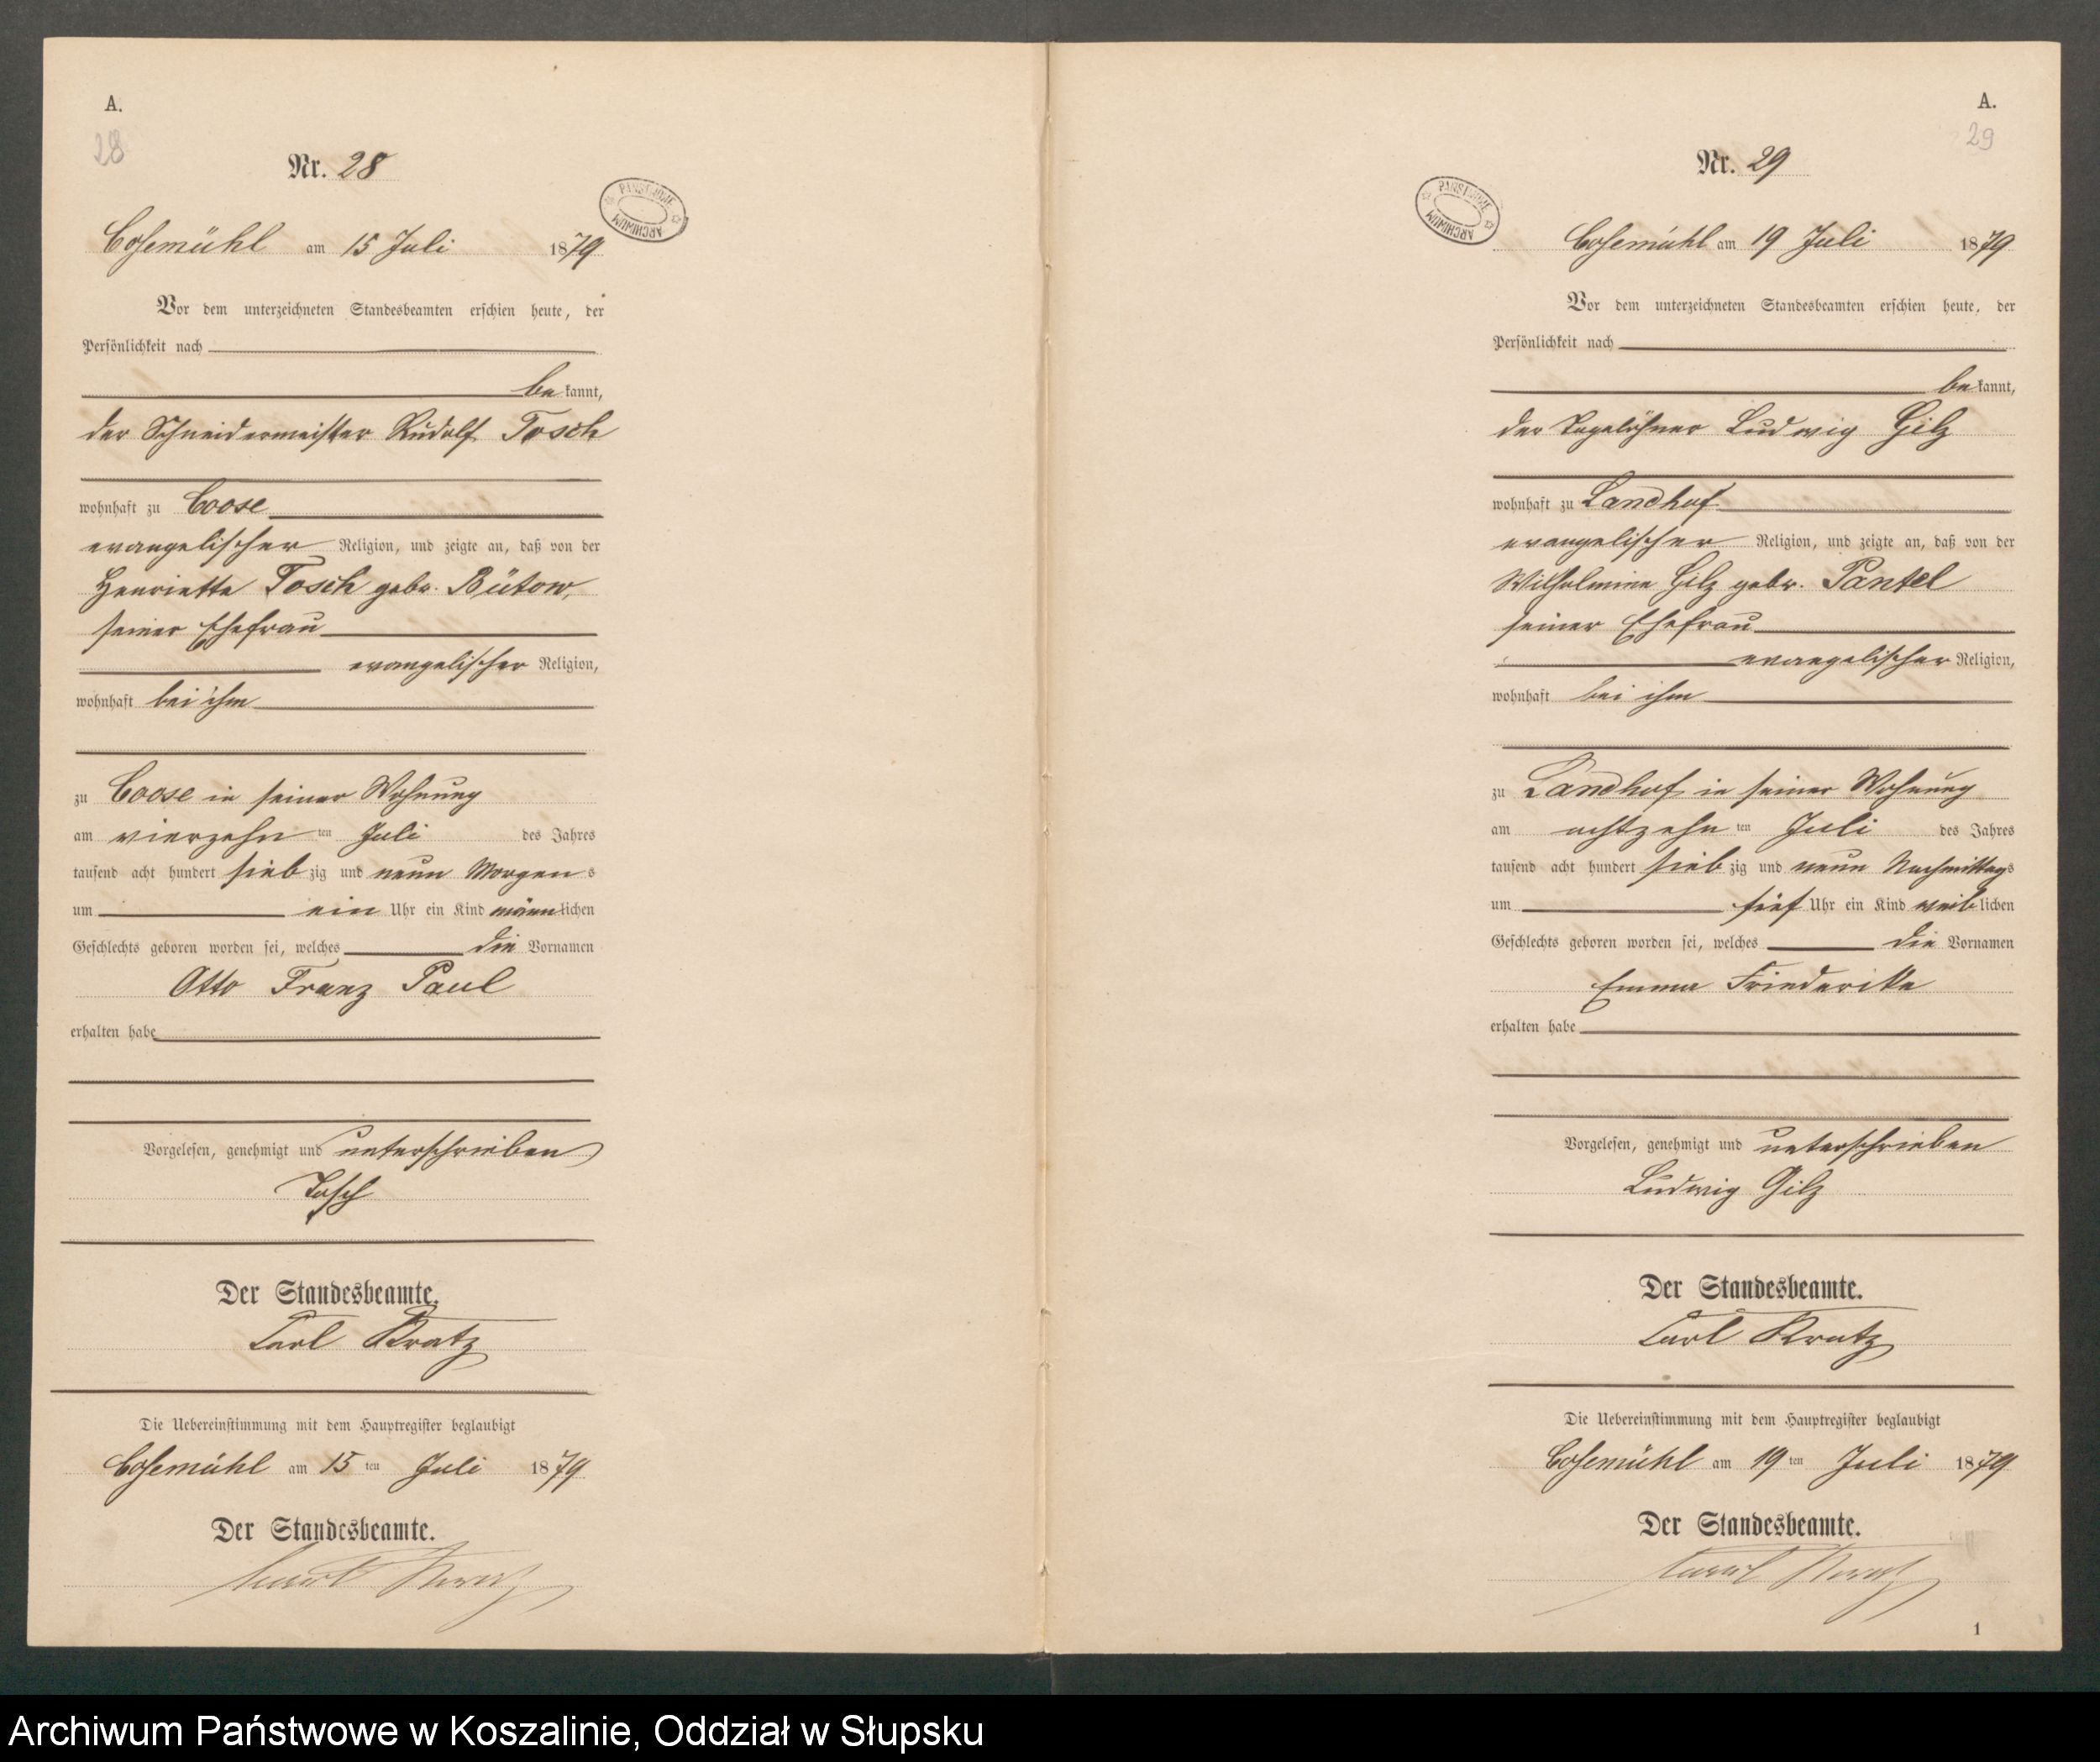 A.
28
Nr. 28
PAŃSTWOWE
ARCHIWUM
Cosemühl am 15 Juli 1879
Vor dem unterzeichneten Standesbeamten erschien heute, der
Persönlichkeit nach
bekannt,
der Schneidermeister Rudolf Tosch
wohnhaft zu Coose
evangelischer Religion, und zeigte an, daß von der
Henriette Tosch gebr. Bütow,
seiner Ehefrau
evangelischer Religion,
wohnhaft bei ihm
zu Coose in seiner Wohnung
am vierzehn ten Juli des Jahres
tausend acht hundert siebzig und neun Morgens
um ein Uhr ein Kind männlichen
Geschlechts geboren worden sei, welches die Vornamen
Otto Franz Paul
erhalten habe
Vorgelesen, genehmigt und unterschrieben
Tosch
Der Standesbeamte.
Carl Kratz
Die Uebereinstimmung mit dem Hauptregister beglaubigt
Cosemühl am 15 ten Juli 1879
Der Standesbeamte.
Carl Kratz
A.
29
Nr. 29
PAŃSTWOWE
ARCHIWUM
Cosemühl am 19 Juli 1879
Vor dem unterzeichneten Standesbeamten erschien heute, der
Persönlichkeit nach
bekannt,
der Tagelöhner Ludwig Gilz
wohnhaft zu Landhof
evangelischer Religion, und zeigte an, daß von der
Wilhelmine Gilz gebr. Pantel
seiner Ehefrau
evangelischer Religion,
wohnhaft bei ihm
zu Landhof in seiner Wohnung
am achtzehn ten Juli des Jahres
tausend acht hundert siebzig und neun Nachmittags
um fünf Uhr ein Kind weiblichen
Geschlechts geboren worden sei, welches die Vornamen
Emma Friederike
erhalten habe
Vorgelesen, genehmigt und unterschrieben
Ludwig Gilz
Der Standesbeamte.
Carl Kratz
Die Uebereinstimmung mit dem Hauptregister beglaubigt
Cosemühl am 19 ten Juli 1879
Der Standesbeamte.
Carl Kratz
1
Archiwum Państwowe w Koszalinie, Oddział w Słupsku